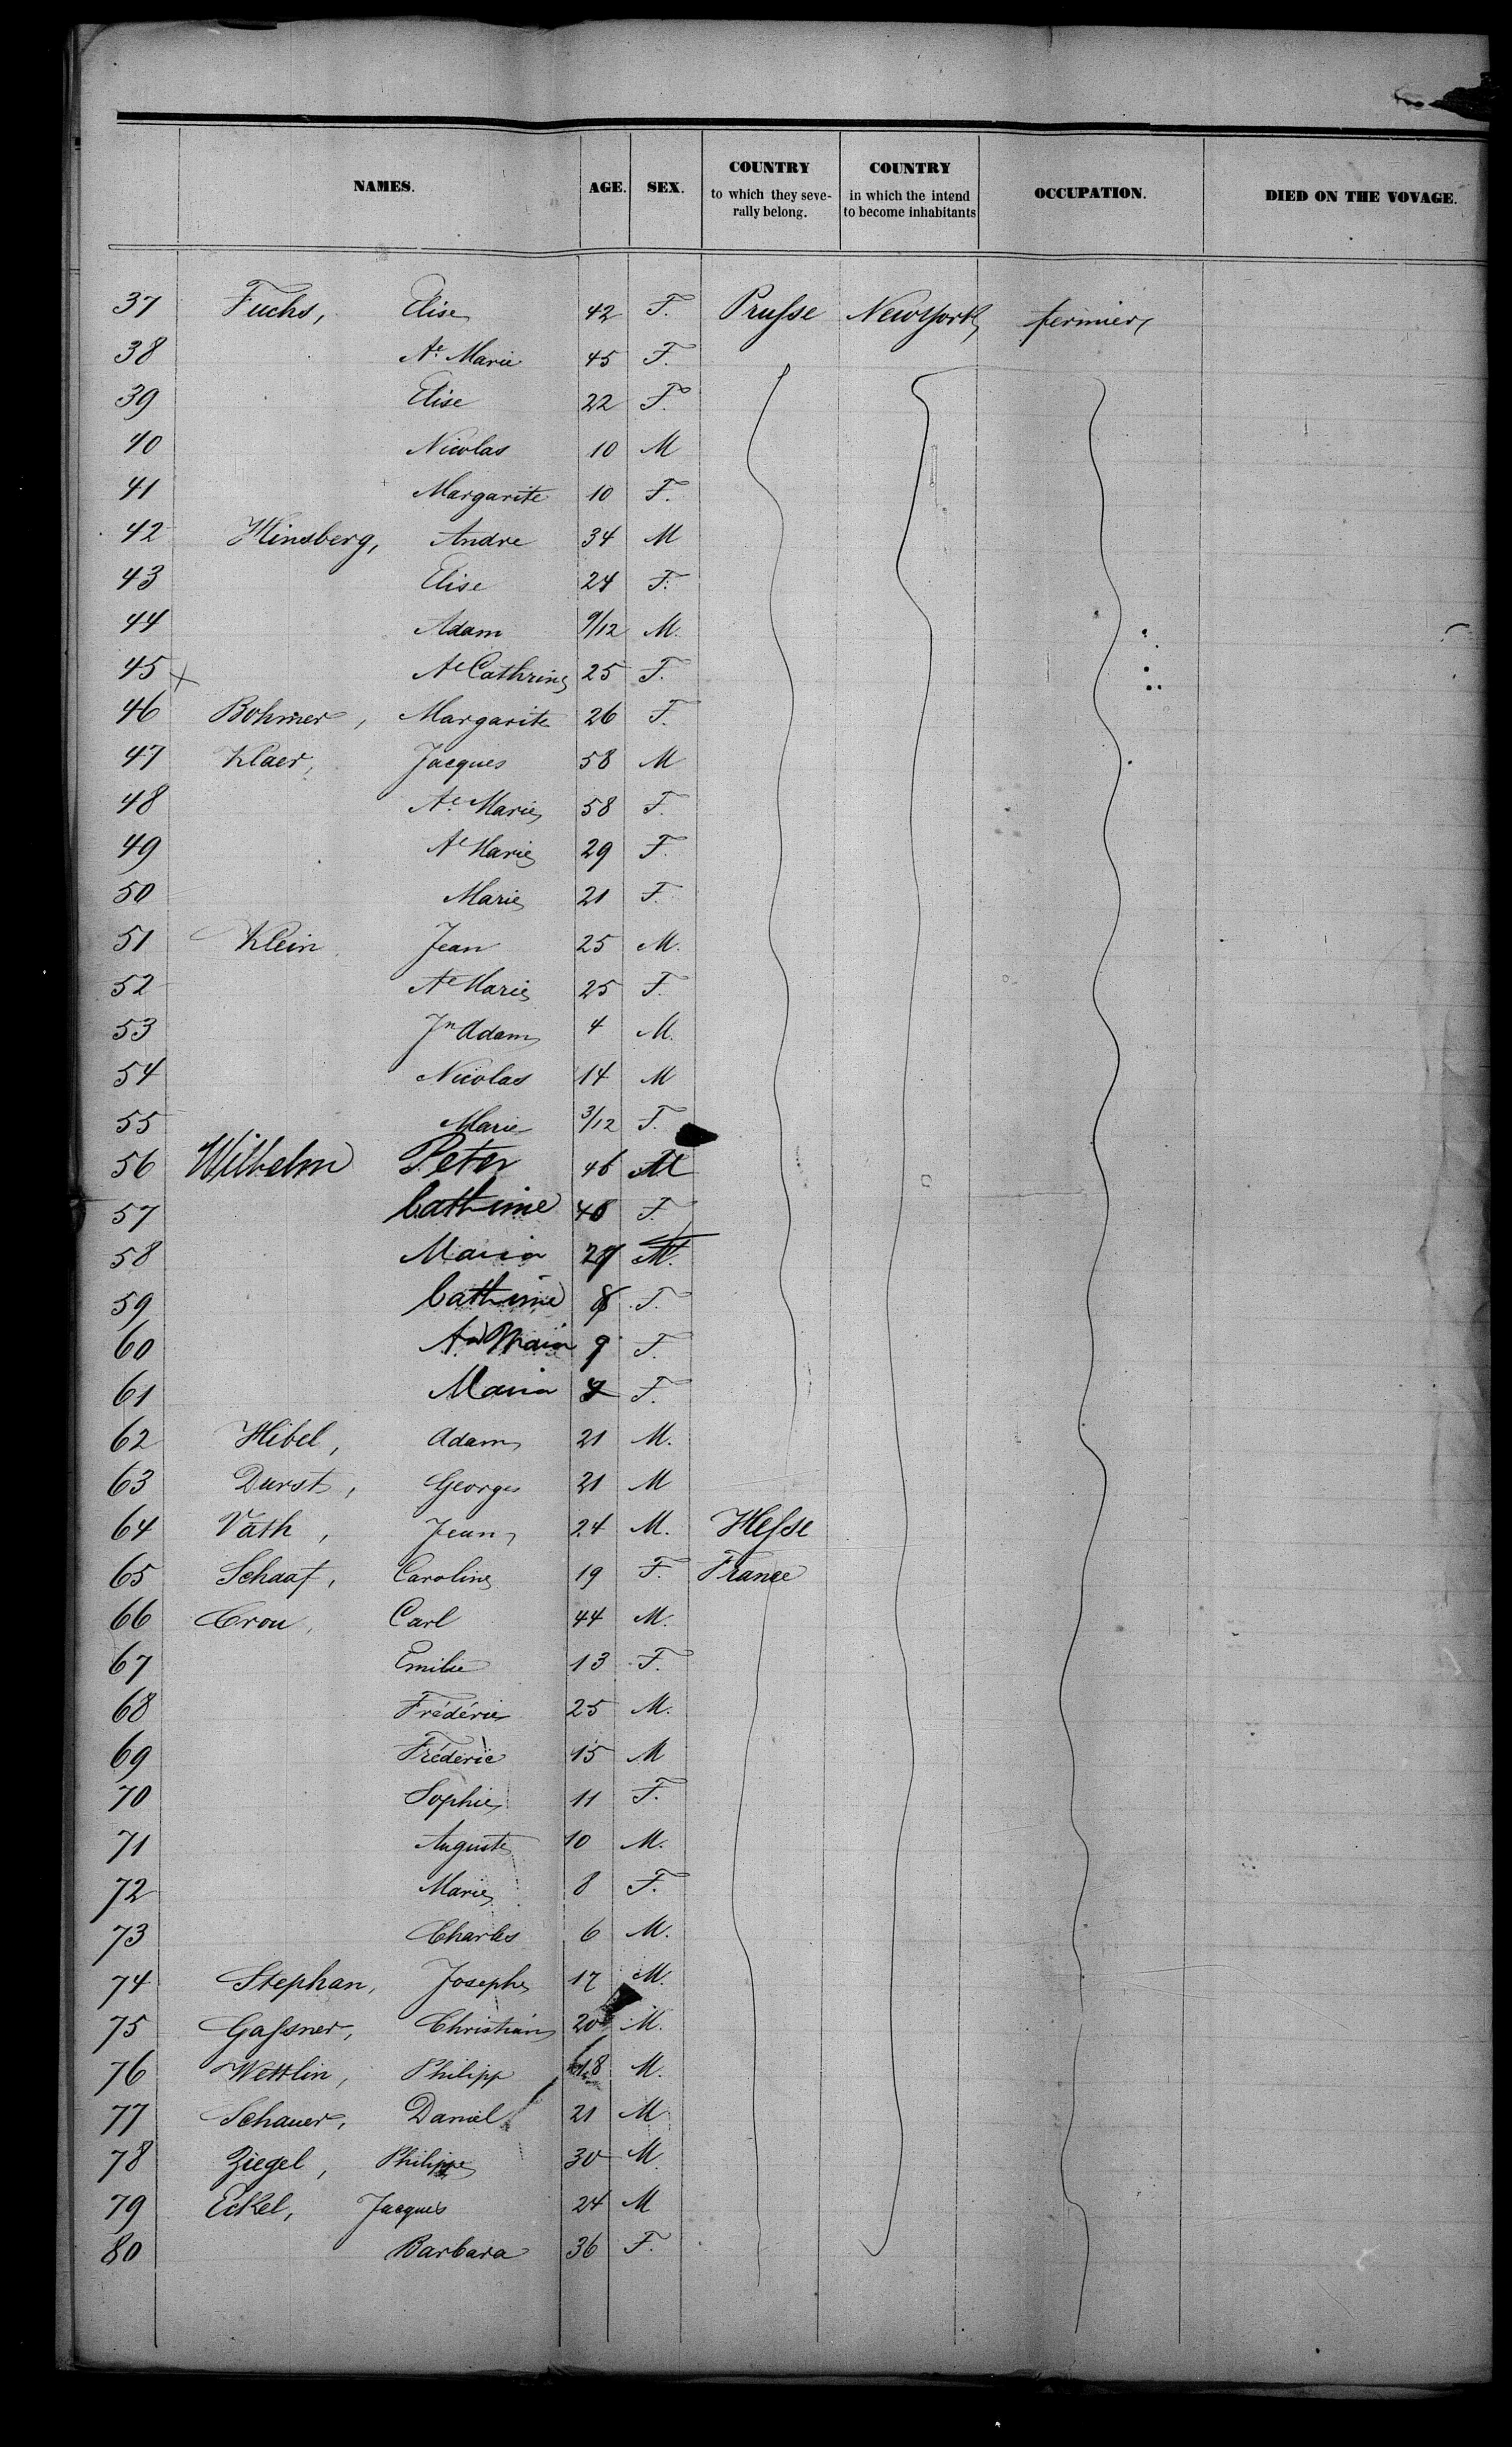 NAMES. AGE. SEX. COUNTRY to which they severally belong. COUNTRY in which the intend to become inhabitants OCCUPATION. DIED ON THE VOYAGE.
37 Fuchs, Elise 42 F. Prusse Newyork fermier
38 Ae. Marie 45 F.
39 Elise 22 F.
40 Nicolas 10 M
41 Margarite 10 F.
42 Hinsberg, Andre 34 M
43 Elise 24 F.
44 Adam 9/12 M.
45 Ae Cathrine 25 F.
46 Bohmer, Margarite 26 F.
47 Klaer, Jacques 58 M
48 Ae. Marie 58 F.
49 Ae Marie 29 F.
50 Marie 21 F.
51 Klein Jean 25 M.
52 Ae Marie 25 F.
53 Jn Adam 4 M.
54 Nicolas 14 M
55 Marie 3/12 F.
56 Wilhelm Peter 46 M
57 Cathrine F.
58 Maria
59 Cathrine 8 F.
60 9 F.
61 Maria F.
62 Hibel, Adam 21 M.
63 Durst, Georges 21 M
64 Vath, Jean 24 M. Hesse
65 Schaaf, Caroline 19 F. France
66 Crou, Carl 44 M.
67 Emilie 13 F.
68 Frédéric 25 M.
69 Frédéric 15 M
70 Sophie 11 F.
71 Auguste 10 M.
72 Marie 8 F.
73 Charles 6 M.
74 Stephan, Joseph 17 M.
75 Gassner, Christian 20 M.
76 Wettlin, Philipp 18 M.
77 Schauer, Daniel 21 M
78 Ziegel, Philippe 30 M.
79 Eckel, Jacques 24 M
80 Barbara 36 F.